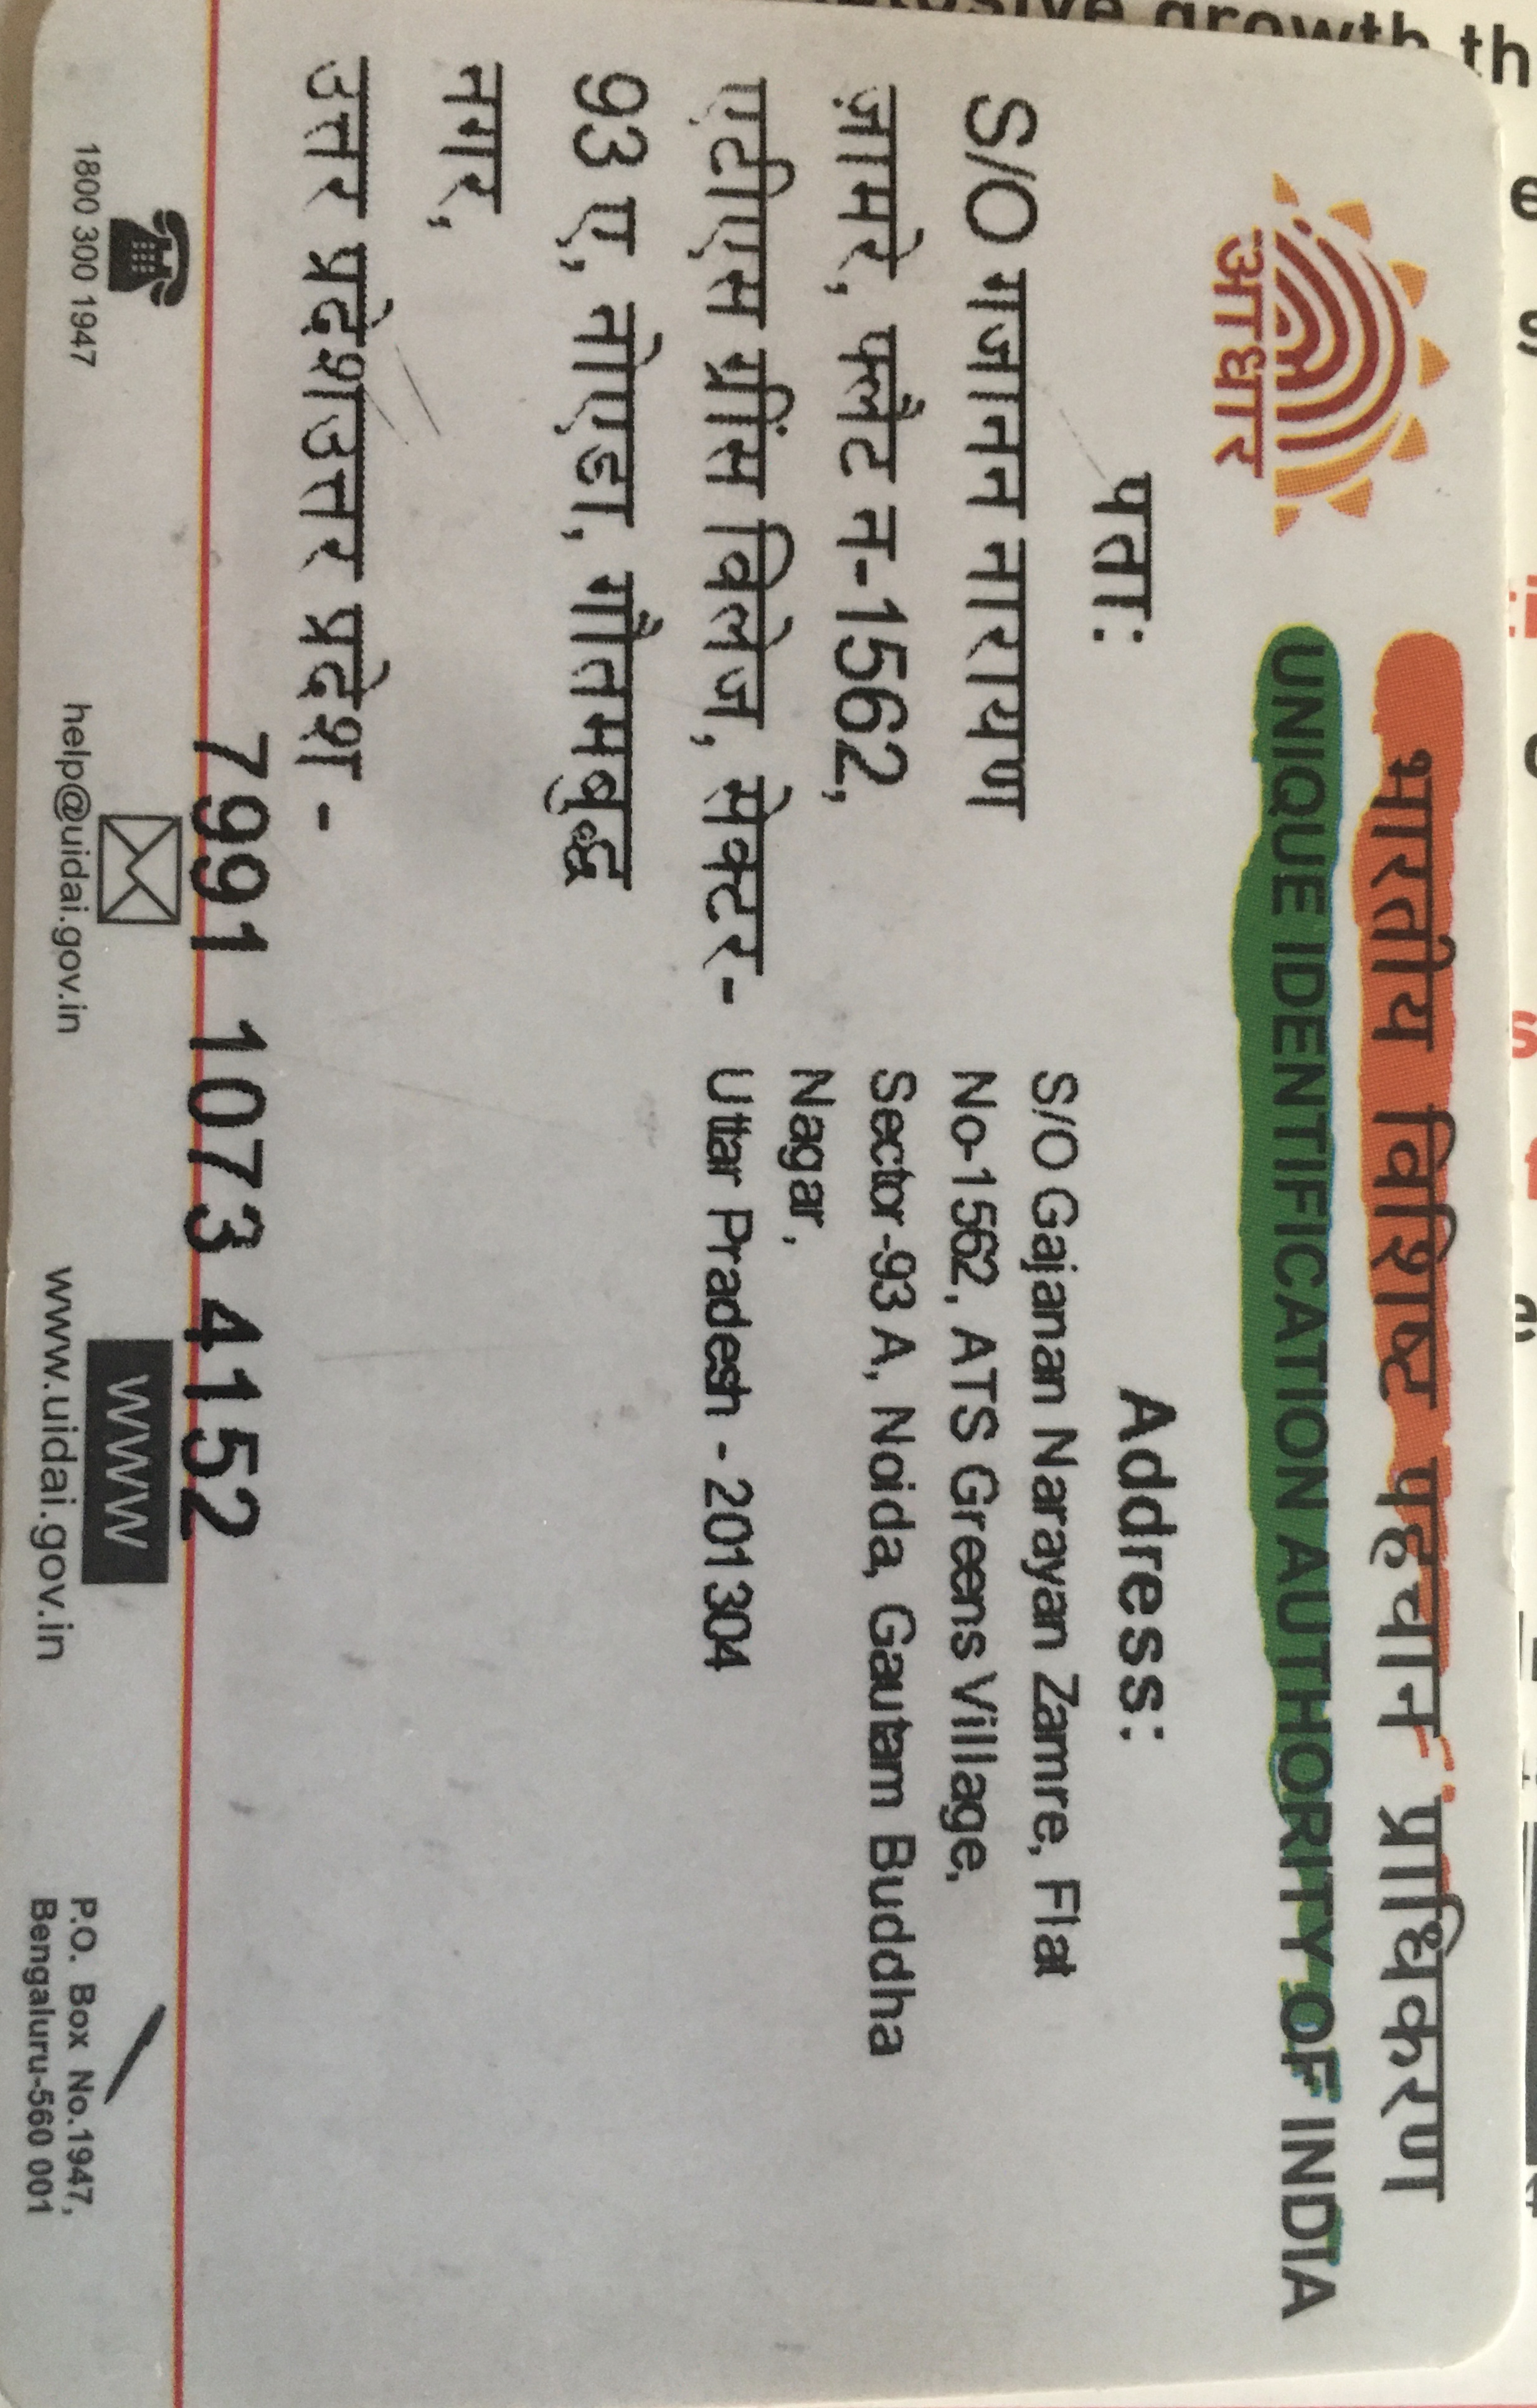 growth th
भारतीय विशिष्ट पहचान प्राधिकरण
UNIQUE IDENTIFICATION AUTHORITY OF INDIA
आधार
पता:
S/O गजानन नारायण
ज़ामरे, फ्लैट न-1562,
एटीएस ग्रींस विलेज, सेक्टर-
93 ए, नोएडा, गौतमबुद्ध
नगर,
उत्तर प्रदेशउत्तर प्रदेश -
Address:
S/O Gajanan Narayan Zamre, Flat
No-1562, ATS Greens Village,
Sector-93 A, Noida, Gautam Buddha
Nagar,
Uttar Pradesh - 201304
7991 1073 4152
1800 300 1947
help@uidai.gov.in
WWW
www.uidai.gov.in
P.O. Box No.1947,
Bengaluru-560 001